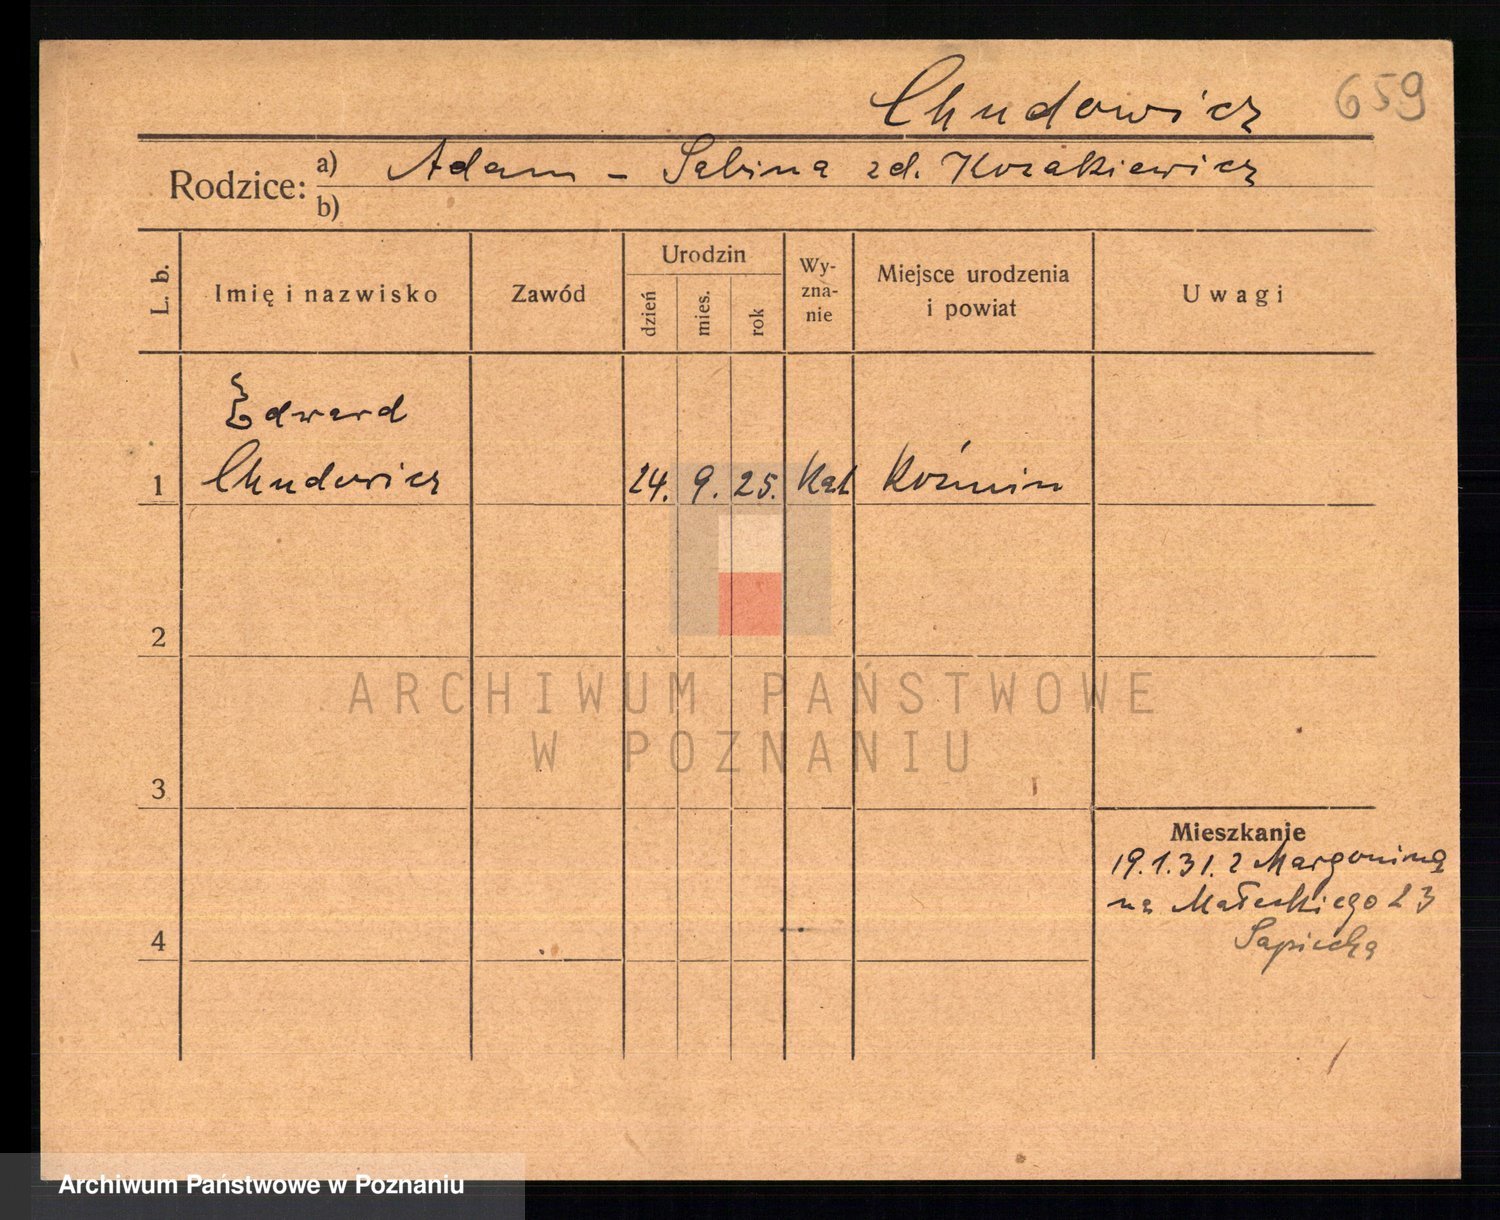 Chudowicz 659
Rodzice: a) Adam - Sabina zd. Kozakiewicz
b)
L. b. Imię i nazwisko Zawód Urodzin Wy-zna-nie Miejsce urodzenia i powiat Uwagi
dzień mies. rok
Edward
1 Chudowicz 24. 9. 25. Kat Koźmin
2
ARCHIWUM PAŃSTWOWE
W POZNANIU
3
Mieszkanie
19.1.31. z Margonina
na Małeckiego 23
Sapiecha
4
Archiwum Państwowe w Poznaniu